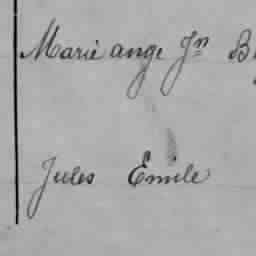 Marie ange Jn B
Jules Emile